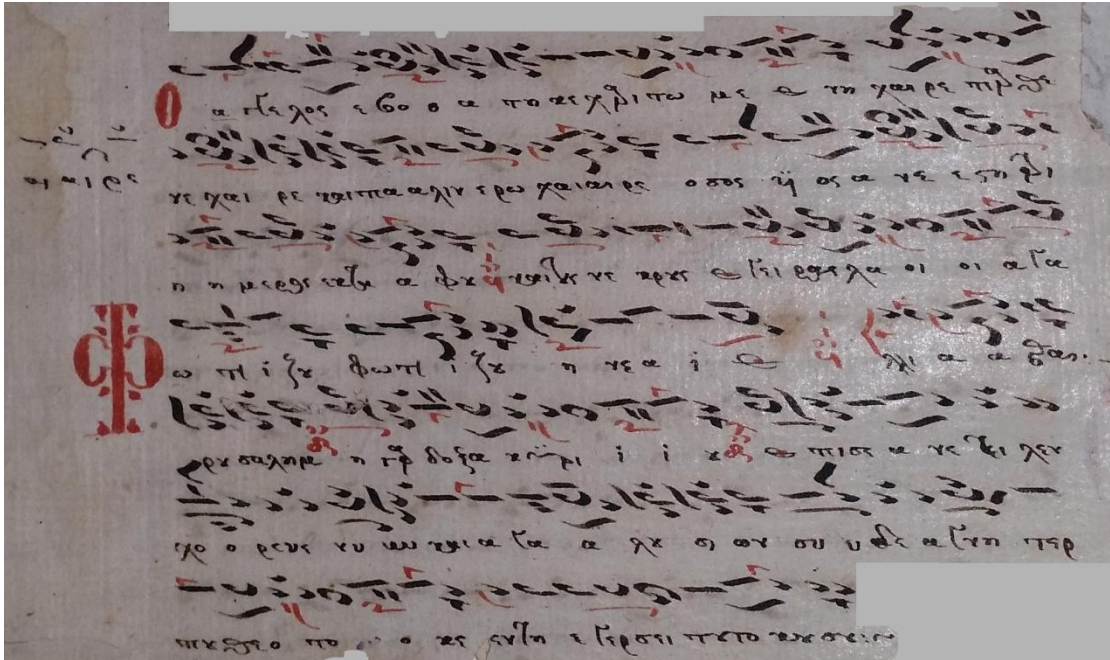 Ο α γγελος εβο ο α τη κεχαριτω με ε νη χαιρε παρθε
αι αι ρε
νε χαι ρε και πα α λιν ερω χαι αι ρε ο σος υι ος α νε ε στη τρι
η η μερος εκ τα α φου και τους νε κρους ε γει ρας λα οι οι α γα
Φ ω τι ι ζου φωτι ι ζου η νε α ι ε λλι α α σθαι
ρουσαλημ η γαρ δοξα κυρι ι ι ου ε πι σε α νε τει λεν
χο ο ρευε νυ υν και α γα α λου σι ων συ υ δε α γνη τερ
που θεο το ο κε εν τη ε γερσει του το κου σου